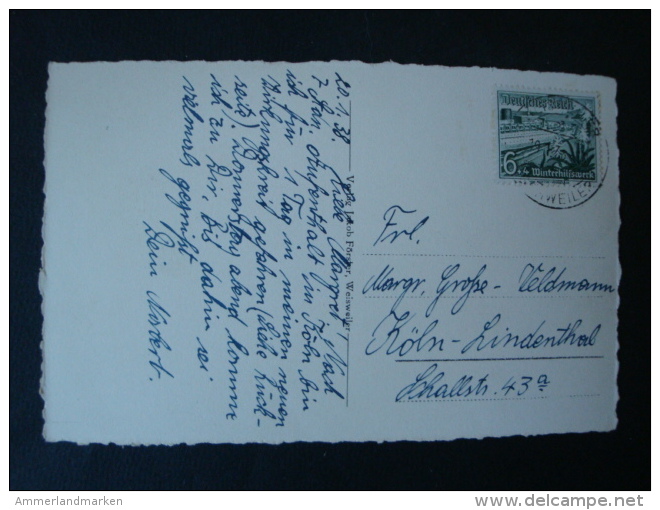 20.1.38. Liebe Margret! Nach
7 stdn. Aufenthalt in Köln bin
ich für 1 Tag in meinen neuen
Wirkungskreis gefahren (siehe Rück-
seite). Donnerstag abend komme
ich zu Dir, bis dahin sei
vielmals gegrüßt
Dein Norbert.
Verlag Jakob Förster, Weisweiler
Deutsches Reich
6+4 Winterhilfswerk
WEILER
Frl.
Margr. Große-Veldmann
Köln-Lindenthal
Schallstr. 43a
Ammerlandmarken
delcampe.net